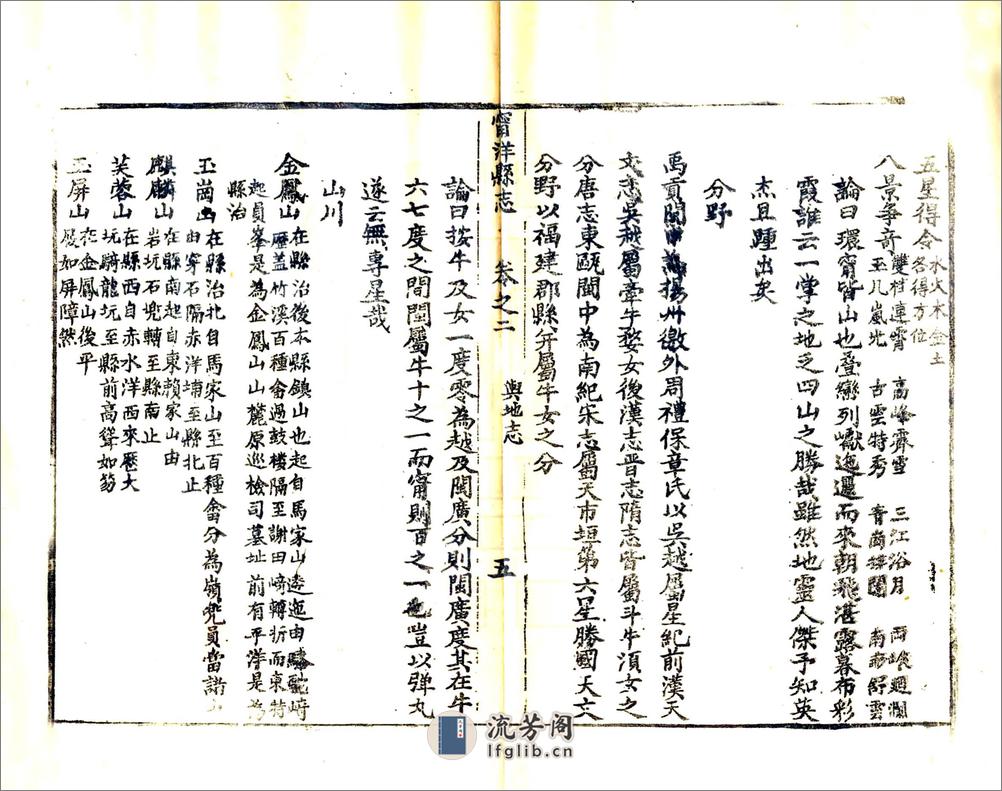 五星得令水火木金土各得方位
八景爭奇雙柱連霄 高峰霽雪 三江浴月 玉几嵐光 古雲特秀 舒雲
論曰環甯皆山也叠巒列巘迤邐而來朝飛湛露暮布彩
霞誰云一掌之地乏四山之勝哉雖然地靈人傑予知英
杰且踵出矣
分野
禹貢閩中為揚州徼外周禮保章氏以吳越屬星紀前漢天
文志吳越屬牽牛婺女後漢志晉志隋志皆屬斗牛須女之
分唐志東甌閩中為南紀宋志屬天市垣第六星勝國天文
分野以福建郡縣并屬牛女之分
甯洋縣志 卷之二 輿地志 五
論曰按牛及女一度零為越及閩廣分則閩廣度其在牛
六七度之間閩屬牛十之一而甯則百之一也豈以弹丸
遂云無專星哉
山川
金鳳山在縣治後本縣鎮山也起自馬家山逶迤由崎歷盖竹溪百種畬過鼓樓隔至謝田崎轉折而東特起員峯是為金鳳山山麓原巡檢司墓址前有平洋是為縣治
玉崗山在縣治北自馬家山至百種畬分為嶺兜員當諸山由穿石隔赤洋埔至縣北止
麒麟山在縣南起自東賴家山由岩坑石兠轉至縣南止
芙蓉山在縣西自赤水洋西來歷大坑騎龍坑至縣前高聳如笏
玉屏山在金鳳山後平展如屏障然
流芳阁
lfglib.cn